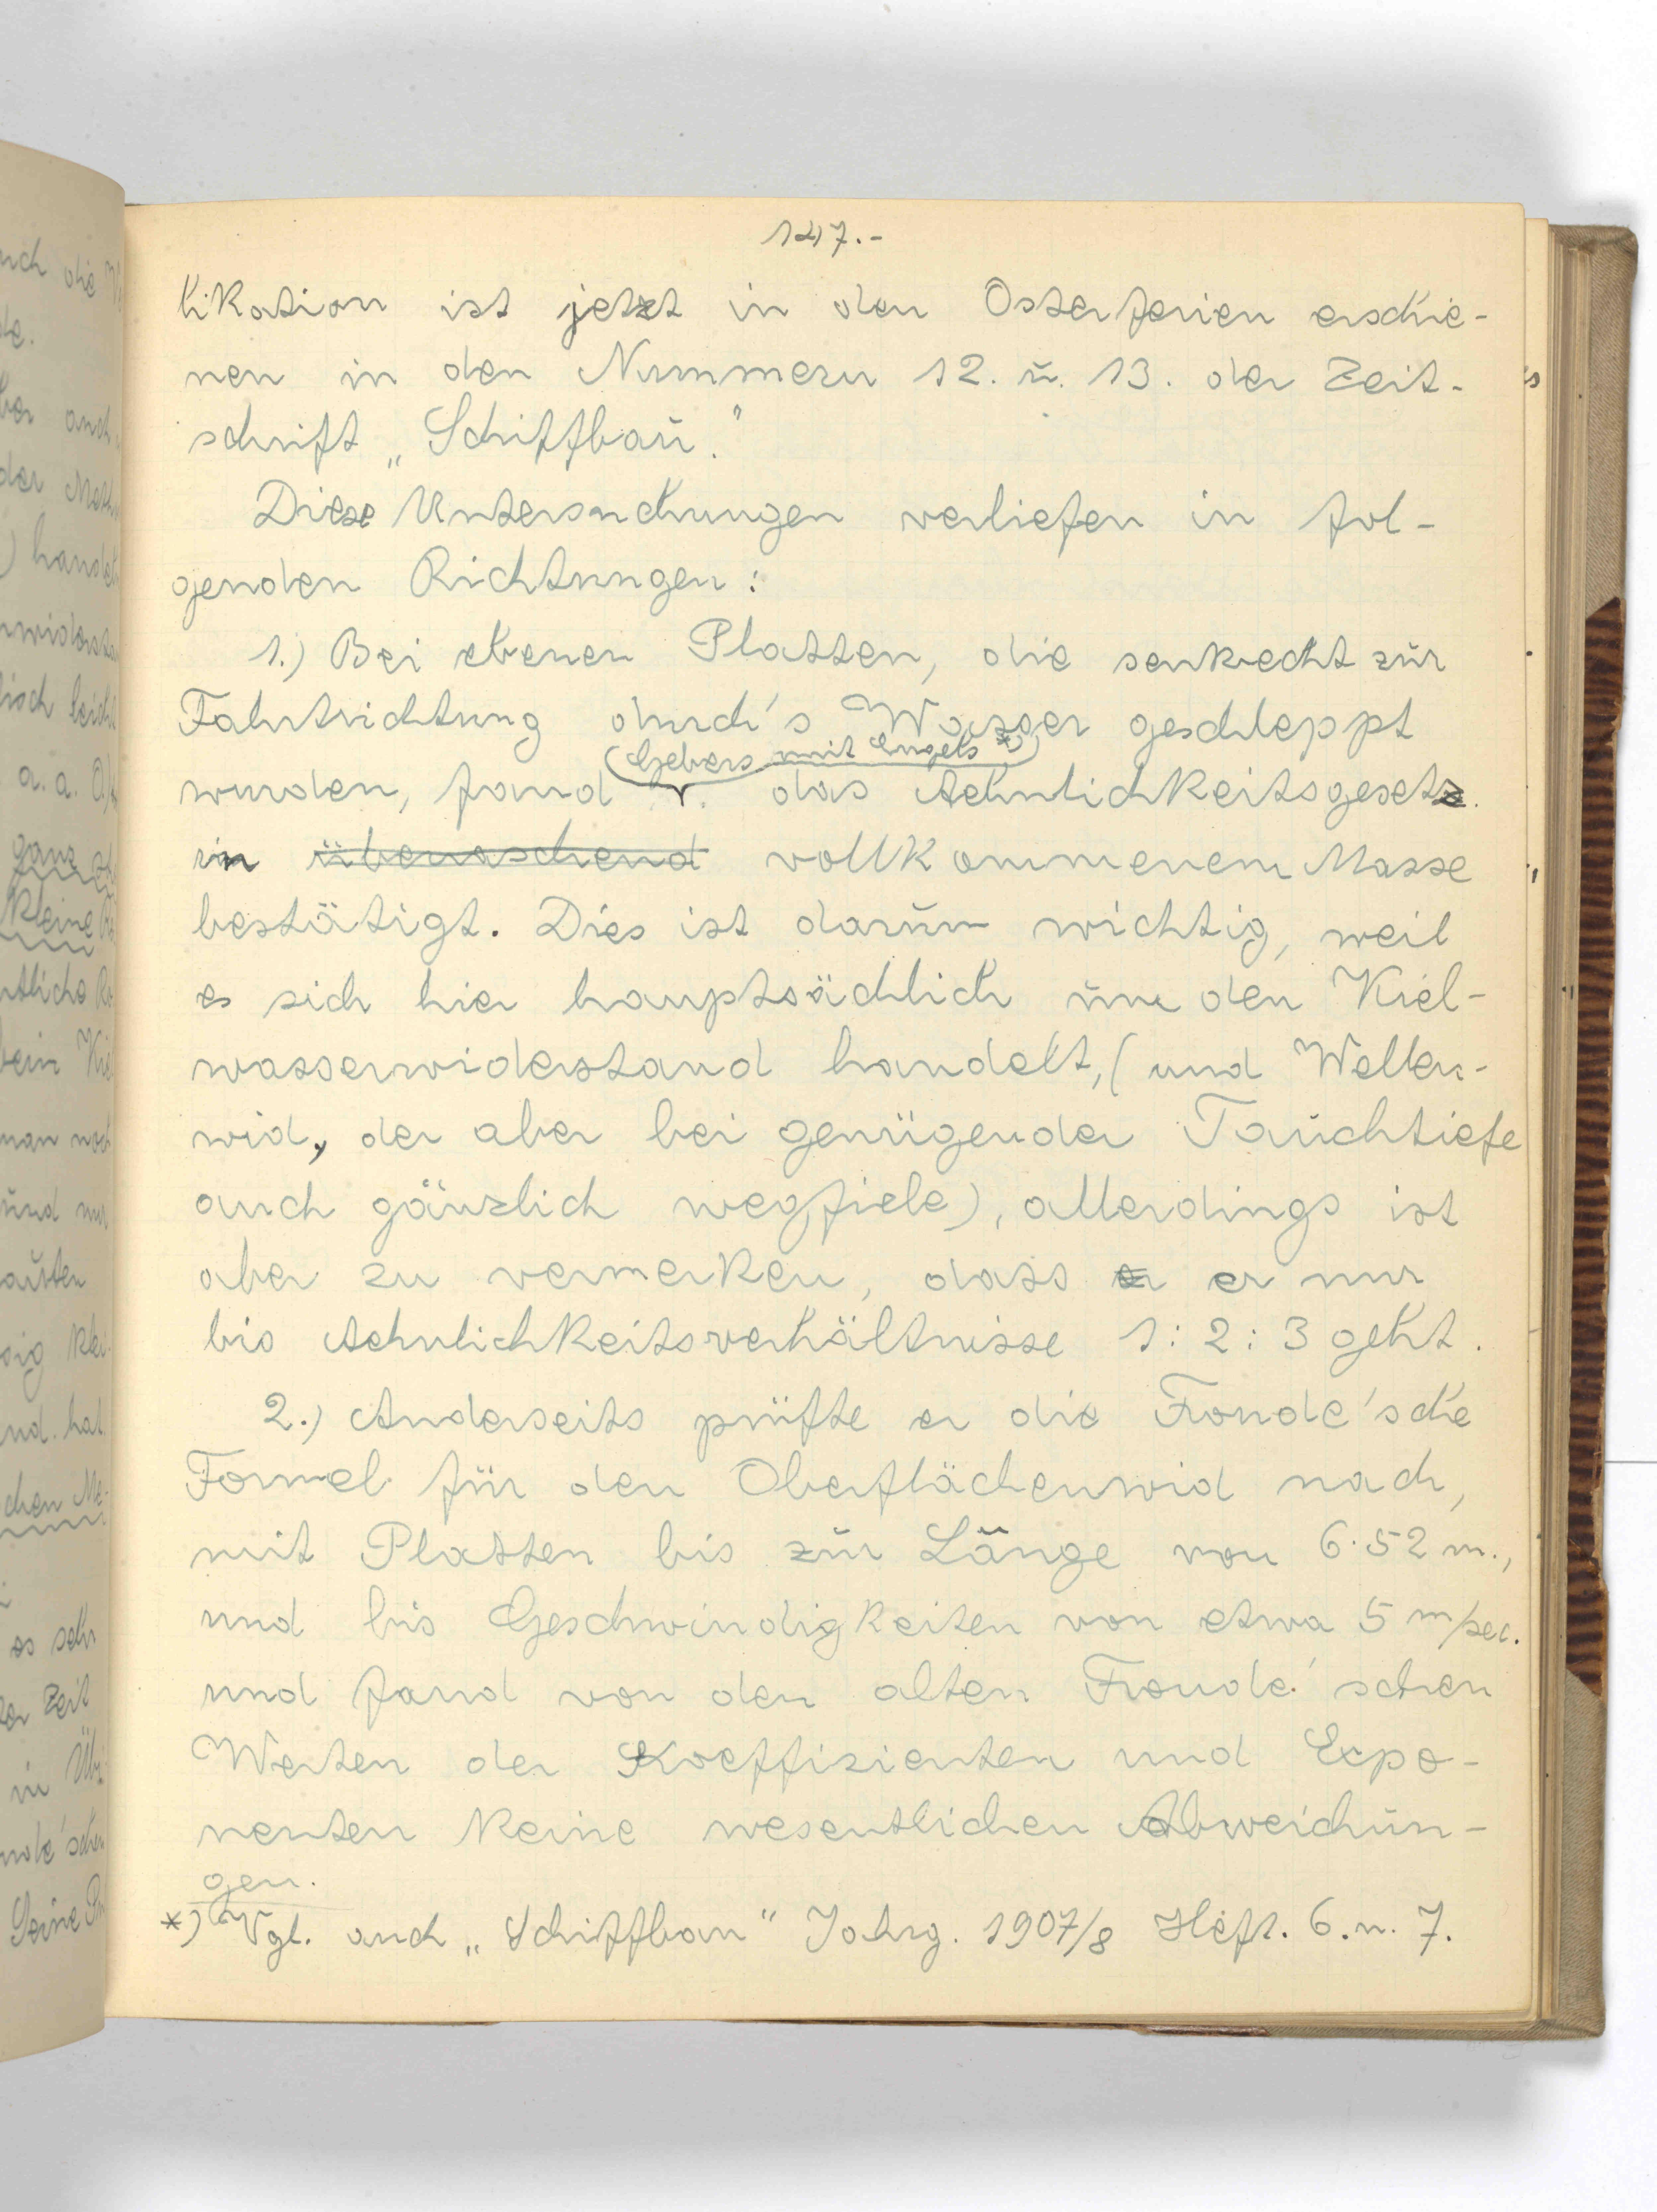 147.-
likation ist jetzt in den Osterferien erschie-
nen in den Nummern 12. ŭ. 13. der Zeit-
schrift „Schiffbaŭ."
Diese Untersuchungen verliefen in fol-
genden Richtungen:
1.) Bei ebenen Platten, die senkrecht zŭr
Fahrtrichtung durch's Wasser geschleppt
(Gebers mit Engels *)
wurden, fand das Aehnlichkeitsgesetz.
in überraschend vollkommenem Masse
bestätigt. Dies ist darŭm wichtig, weil
es sich hier hauptsächlich ŭm den Kiel-
wasserwiderstand handelt, (und Wellen-
wid, der aber bei genügender Taŭchtiefe
auch gänzlich wegfiele), allerdings ist
aber zu vermerken, dass er nur
bis Aehnlichkeitsverhältnisse 1:2:3 geht.
2.) Anderseits prüfte er die Froude'sche
Formel für den Oberflächenwid nach,
mit Platten bis zŭr Länge von 6·52 m.,
und bis Geschwindigkeiten von etwa 5 m/sec.
und fand von den alten Froude'schen
Werten der Koeffizienten und Expo-
nenten keine wesentlichen Abweichŭn-
gen.
*) Vgl. auch „Schiffbau" Jahrg. 1907/8 Heft. 6. u. 7.